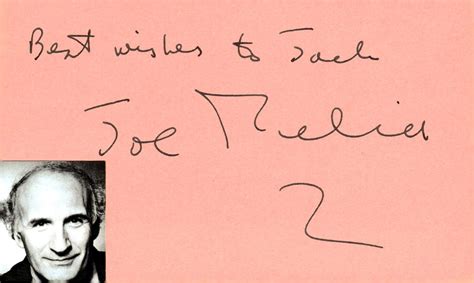 Best wishes to Jack
Joe Melia